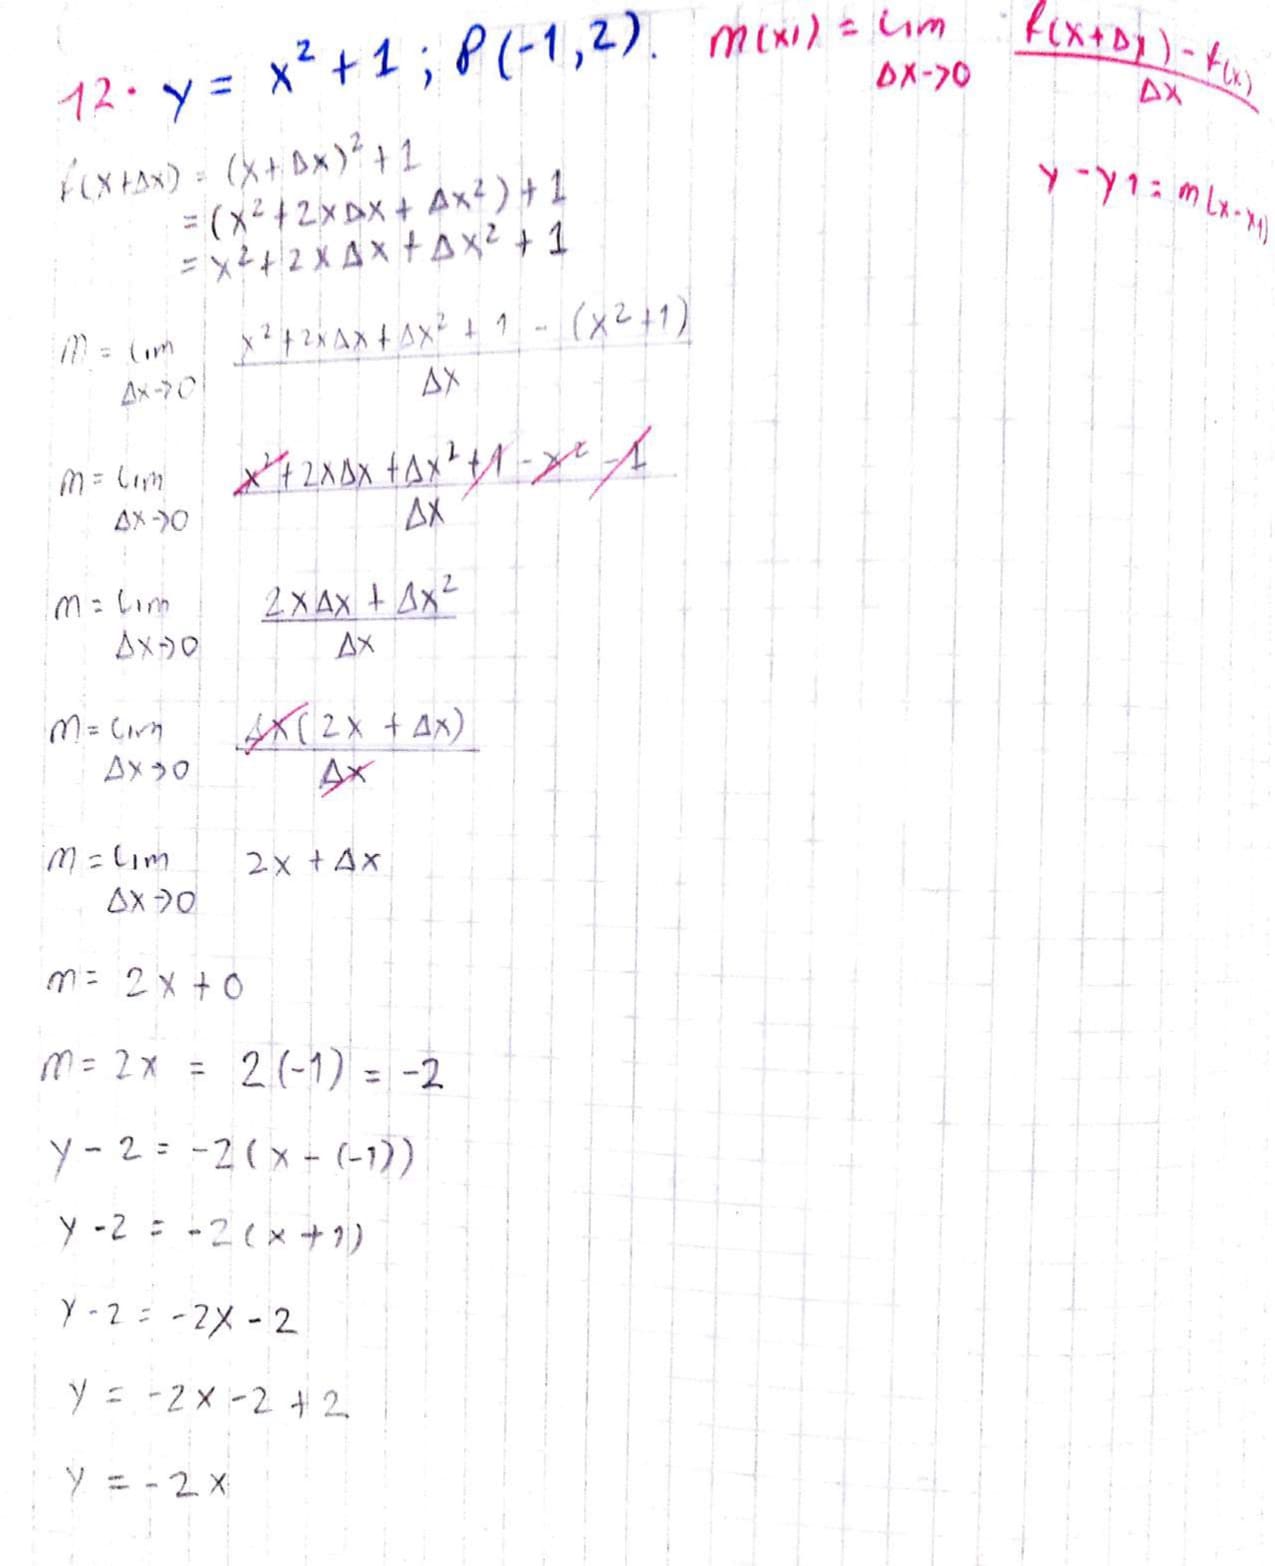 12. y = x² + 1 ; P(-1,2). m(x1) = Lim Δx->0 f(x+Δx) - f(x) / Δx
f(x+Δx) = (x+Δx)² + 1
y - y1 = m(x-x1)
= (x² + 2xΔx + Δx²) + 1
= x² + 2xΔx + Δx² + 1
m = Lim Δx->0 x² + 2xΔx + Δx² + 1 - (x²+1) / Δx
m = Lim Δx->0 x² + 2xΔx + Δx² + 1 - x² - 1 / Δx
m = Lim Δx->0 2xΔx + Δx² / Δx
m = Lim Δx->0 Δx(2x + Δx) / Δx
m = Lim Δx->0 2x + Δx
m = 2x + 0
m = 2x = 2(-1) = -2
y - 2 = -2(x - (-1))
y - 2 = -2(x + 1)
y - 2 = -2x - 2
y = -2x - 2 + 2
y = -2x